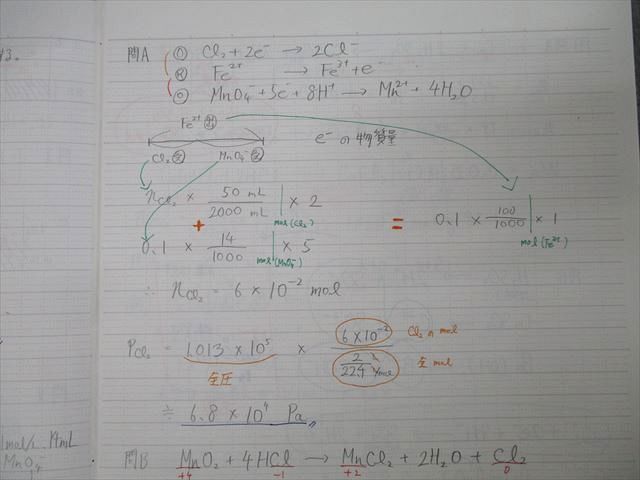 問A ⓪ Cl₂ + 2e⁻ → 2Cl⁻
Ⓡ Fe²⁺ → Fe³⁺ + e⁻
⓪ MnO₄⁻ + 5e⁻ + 8H⁺ → Mn²⁺ + 4H₂O
Fe²⁺
Cl₂ MnO₄⁻ e⁻の物質量
n_Cl₂ × 50 mL / 2000 mL | × 2
mol(Cl₂)
+ = 0.1 × 100/1000 | × 1
mol(Fe²⁺)
0.1 × 14/1000 | × 5
mol(MnO₄⁻)
∴ n_Cl₂ = 6 × 10⁻² mol
P_Cl₂ = 1.013 × 10⁵ × 6×10⁻² / (2/22.4 mol) Cl₂のmol
全圧 全mol
≒ 6.8 × 10⁴ Pa
1mol/L 14mL
MnO₄⁻
問B MnO₂ + 4HCl → MnCl₂ + 2H₂O + Cl₂
+4 -1 +2 0